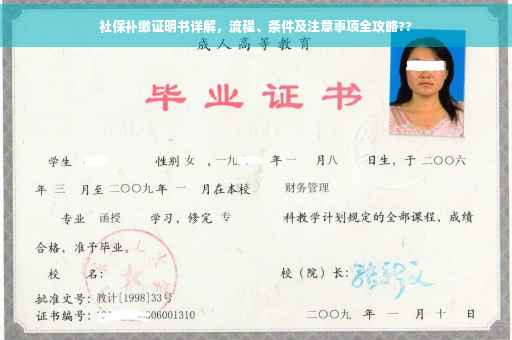 社保补缴证明书详解，流程、条件及注意事项全攻略??
成人高等教育
毕业证书
学生 性别 女 ，一九 年 一 月八 日生，于 二〇〇六
年 三 月至 二〇〇九 年 一 月在本校 财务管理
专业 函授 学习，修完 专 科教学计划规定的全部课程，成绩
合格，准予毕业。
校 名： 校（院）长：
批准文号：教计[1998]33号
证书编号： 006001310 二〇〇九 年 一 月 十 日